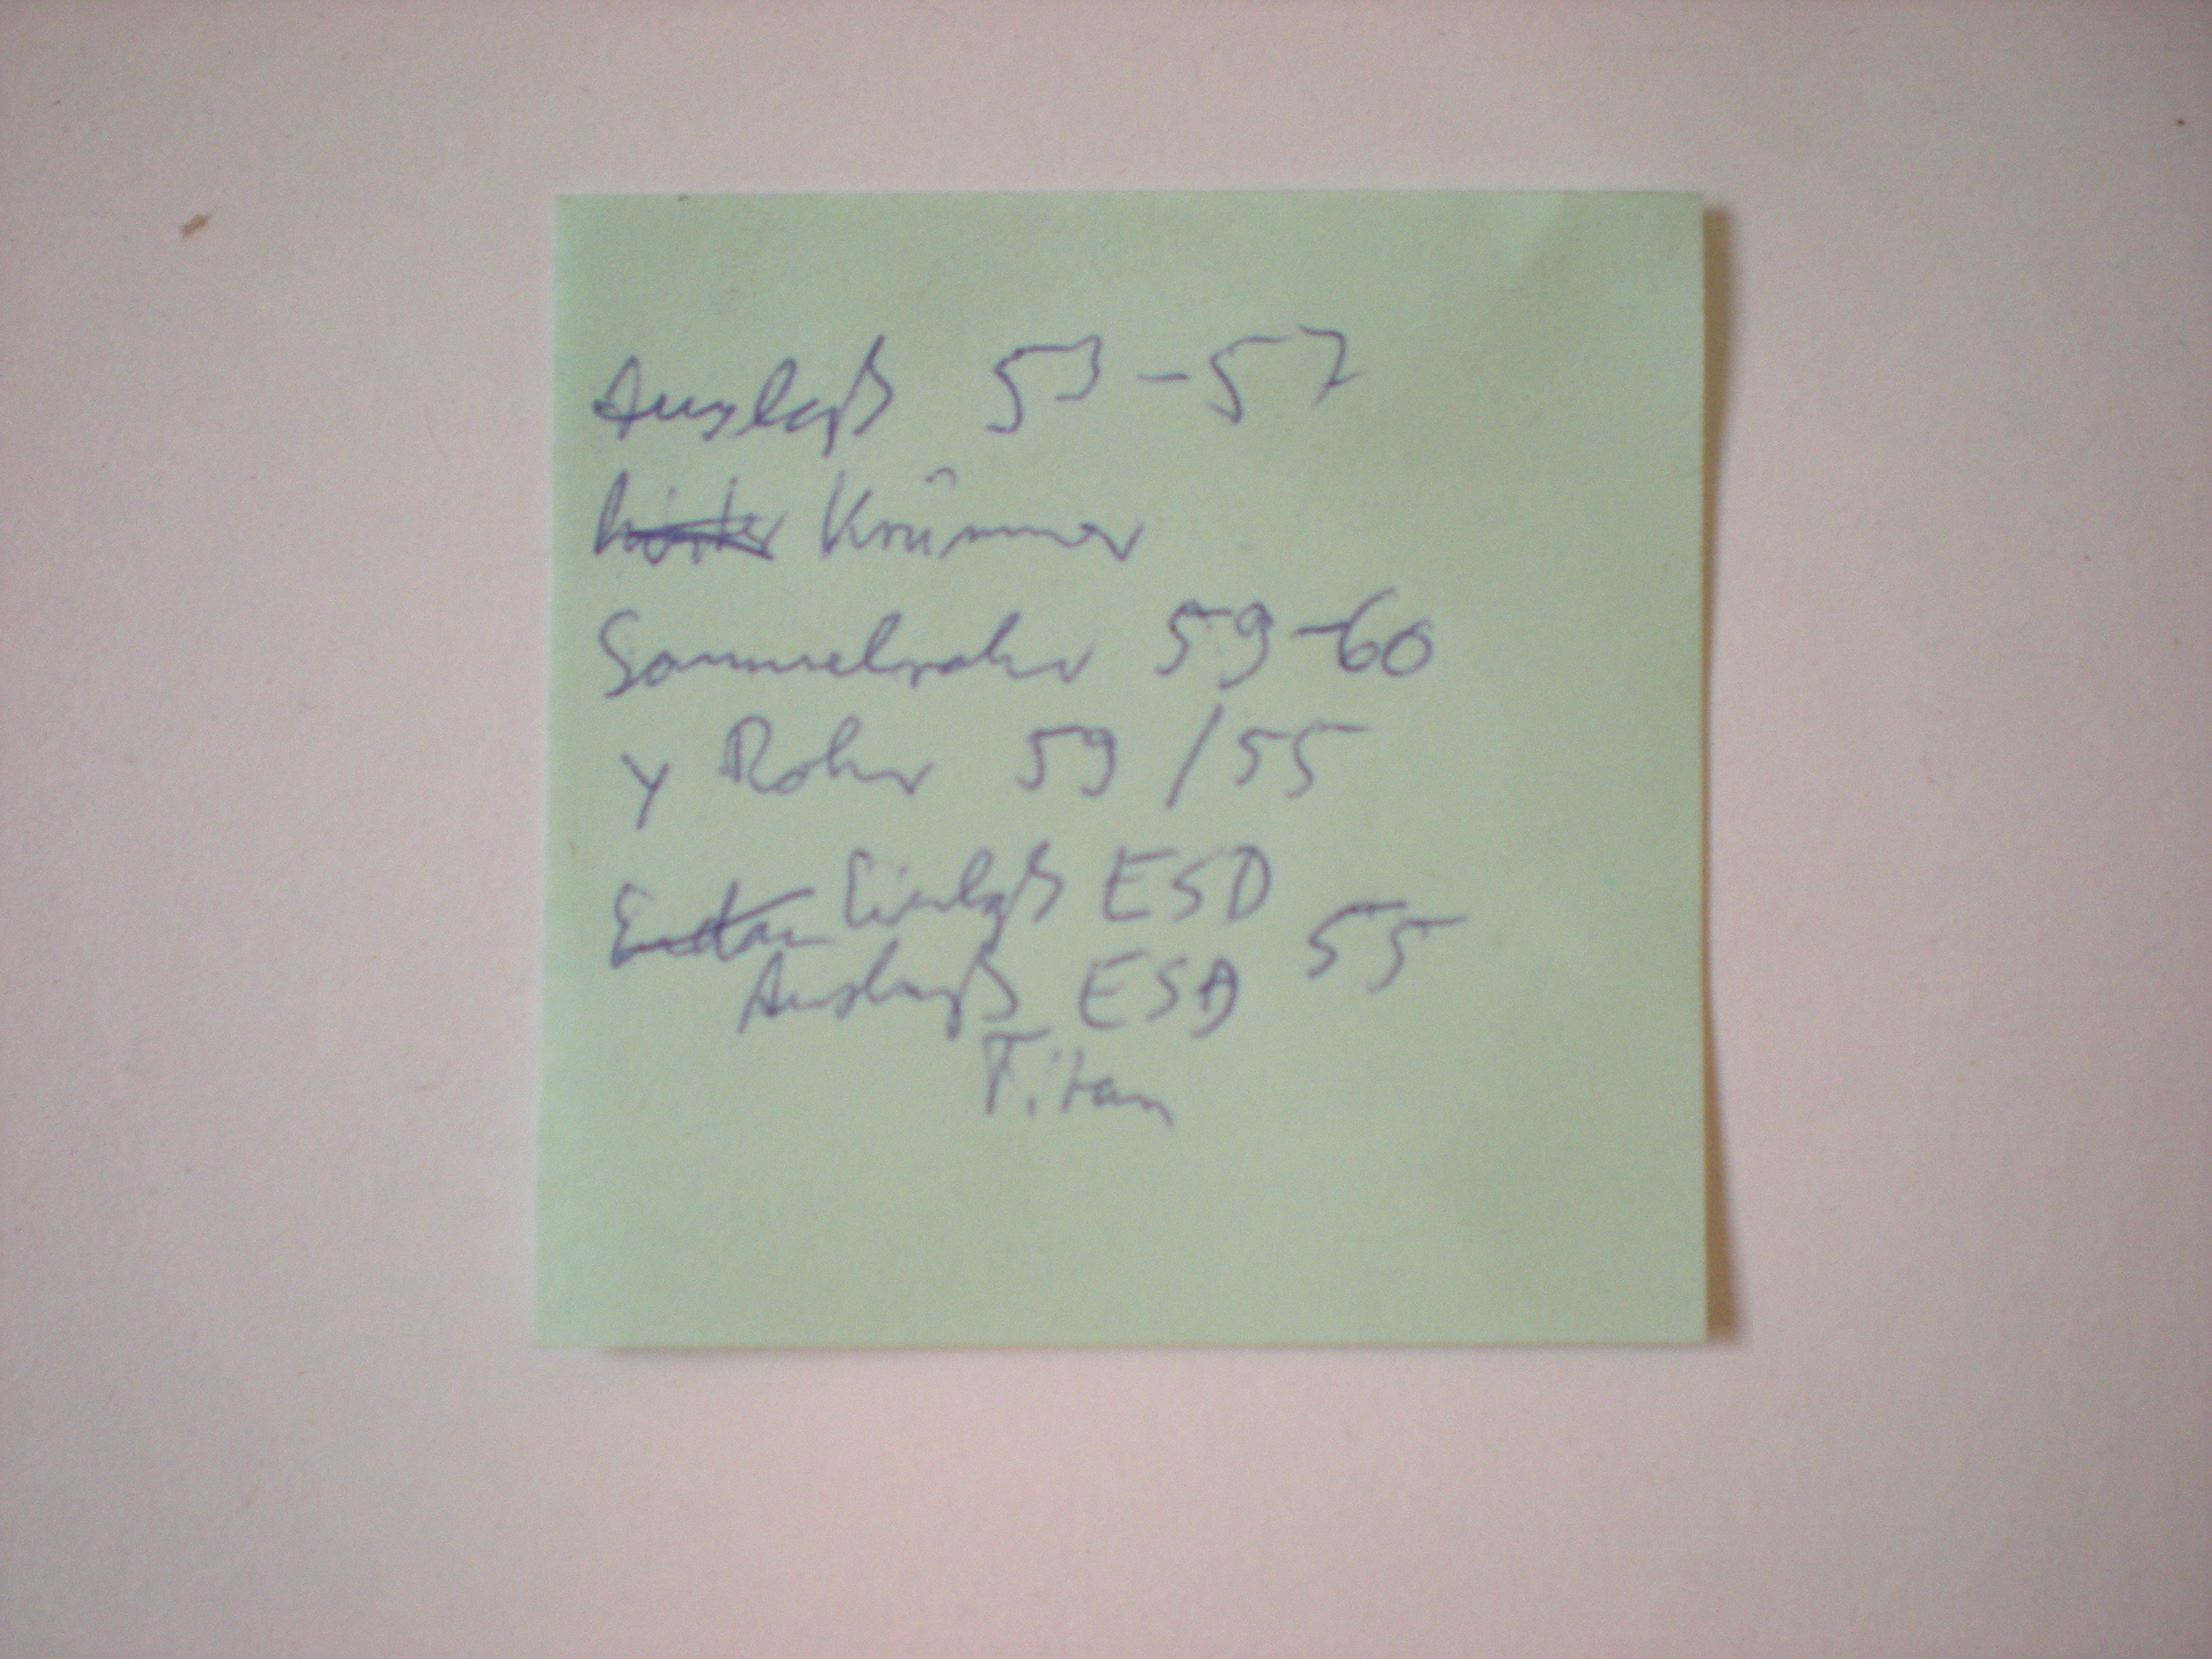 Auslaß 53-57
hinter Krümmer
Sammelrohr 59-60
y Rohr 59 / 55
Einlaß ESD
55
Auslaß ESD
Titan